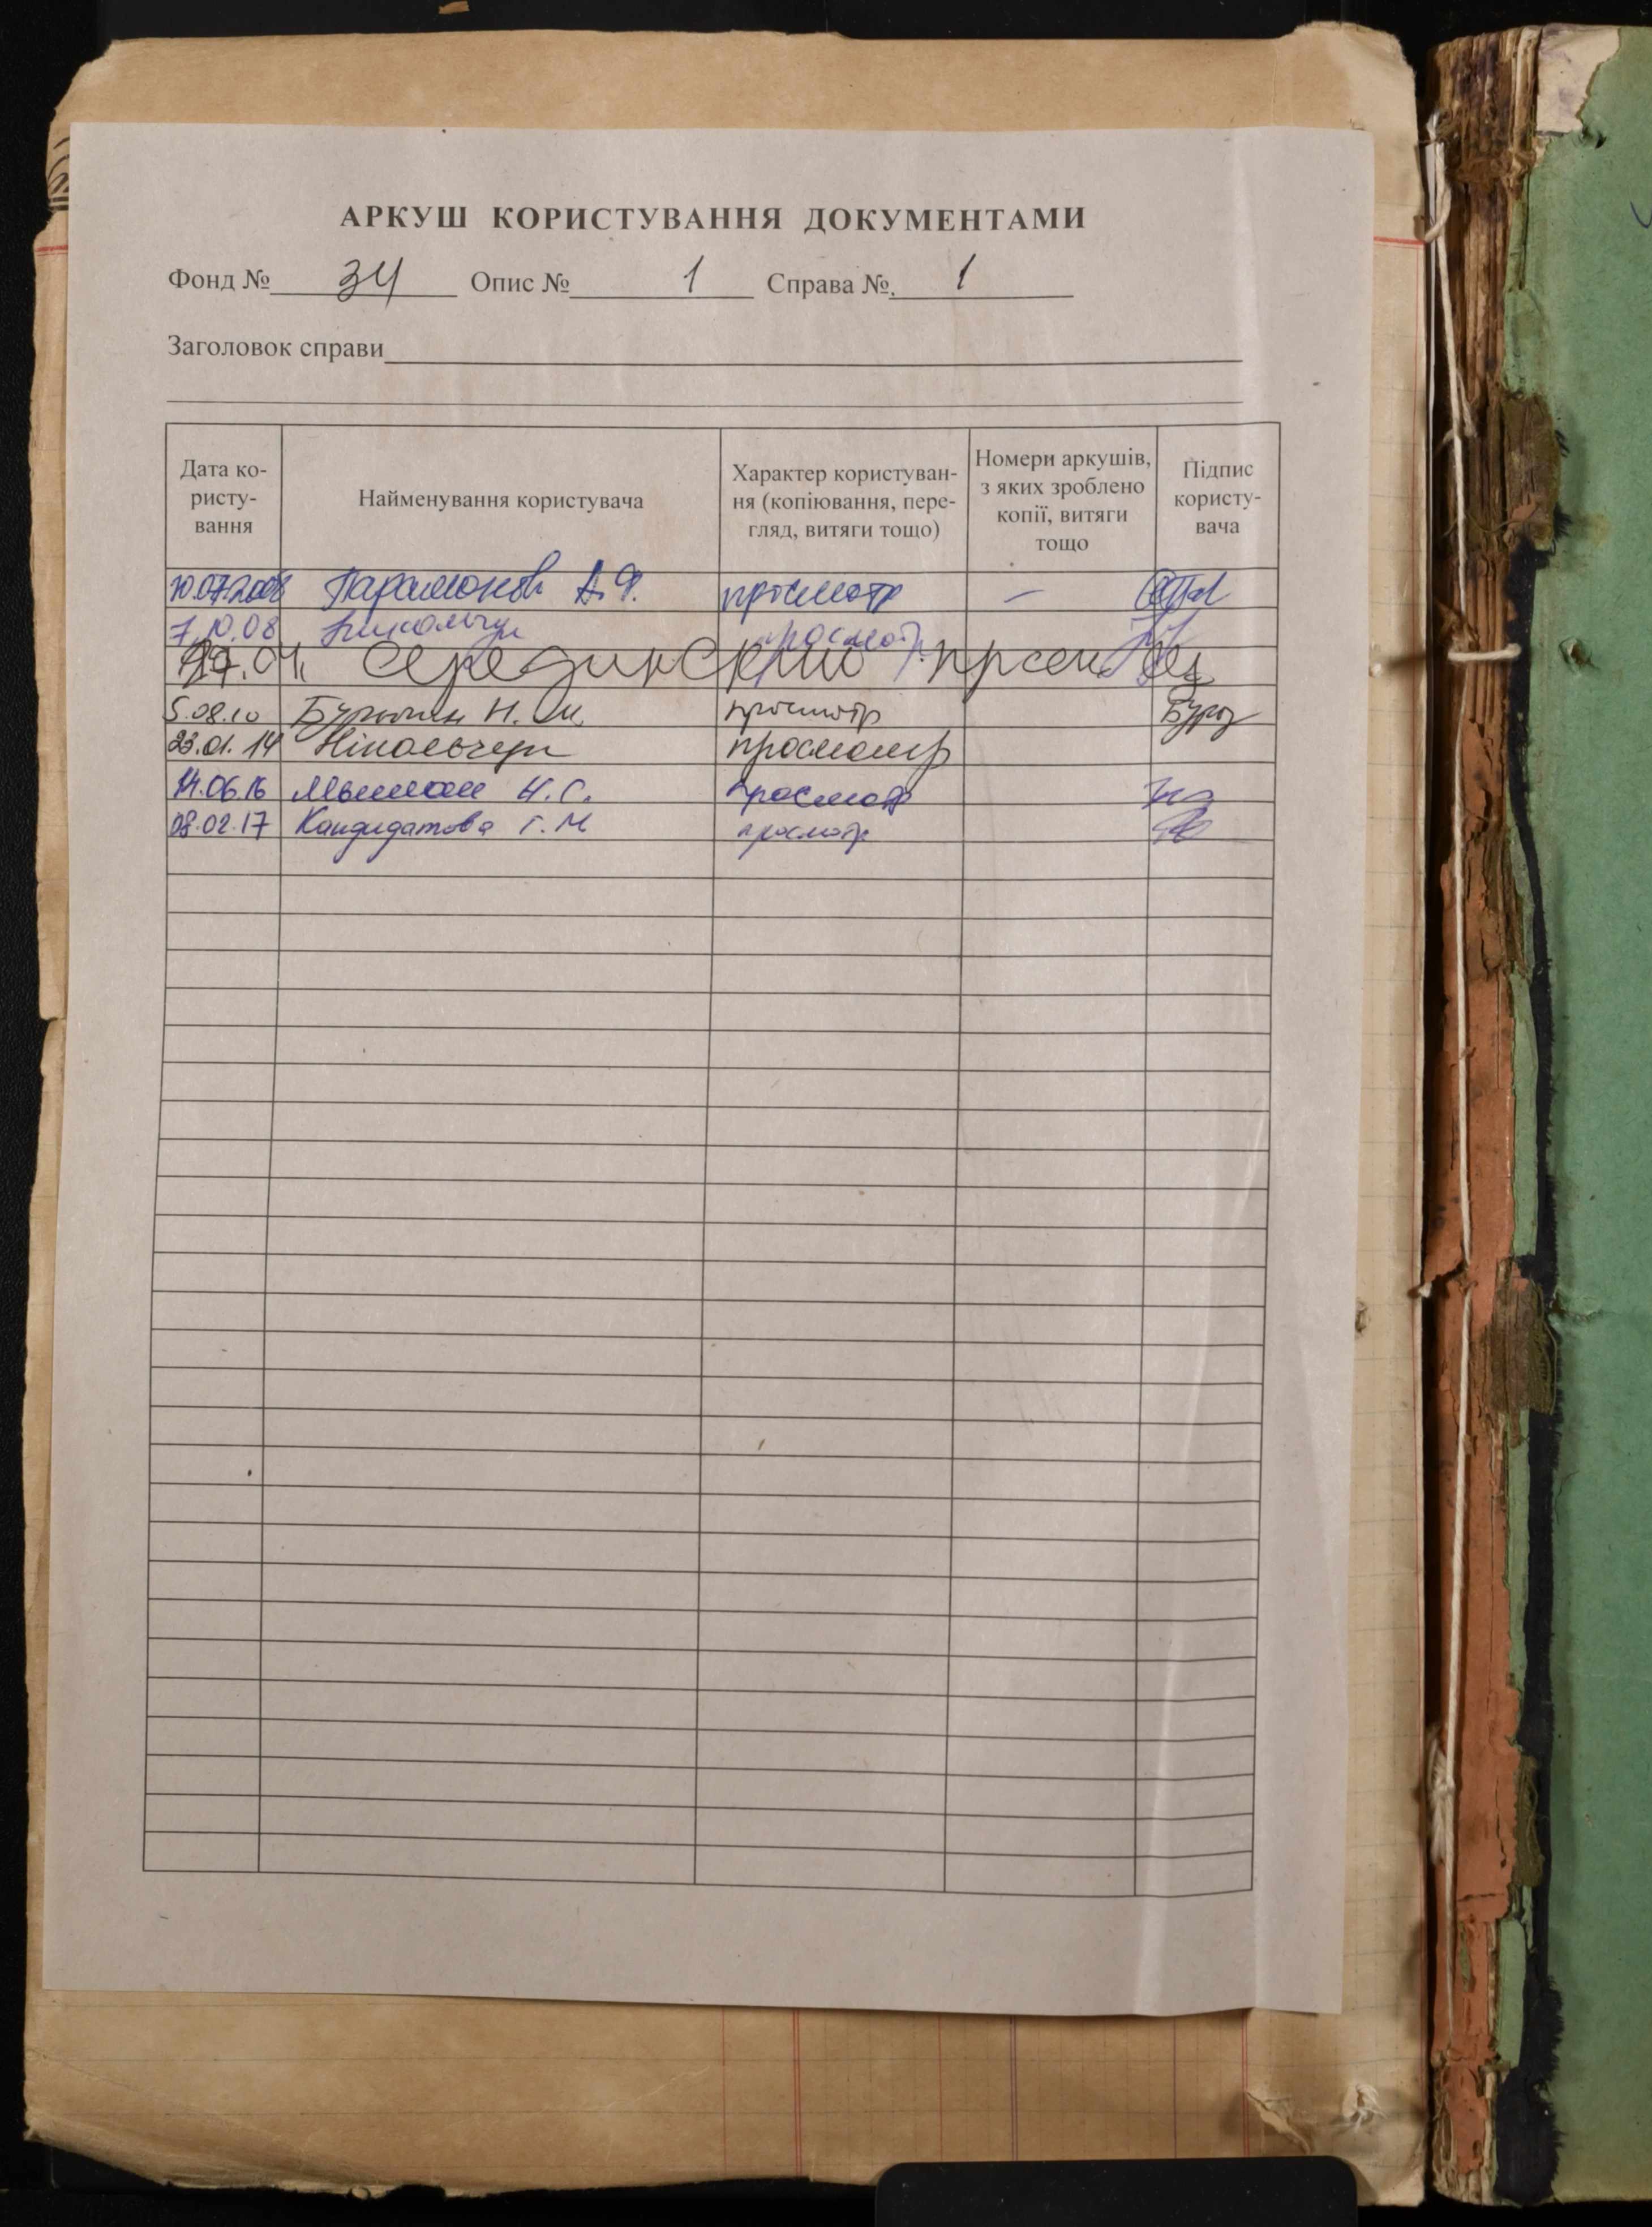 АРКУШ КОРИСТУВАННЯ ДОКУМЕНТАМИ
Фонд № 34 Опис № 1 Справа №. 1
Заголовок справи
Дата ко-
ристу-
вання
Найменування користувача
Характер користуван-
ня (копіювання, пере-
гляд, витяги тощо)
Номери аркушів,
з яких зроблено
копії, витяги
тощо
Підпис
користу-
вача
10.07.2008 Парамонов А.Ф. просмотр —
7.10.08 просмотр
Серединский
5.08.10 Н. просмотр
23.01.14 просмотр
14.06.16 Н.С. просмотр
08.02.17 Кандидатова Г.М просмотр